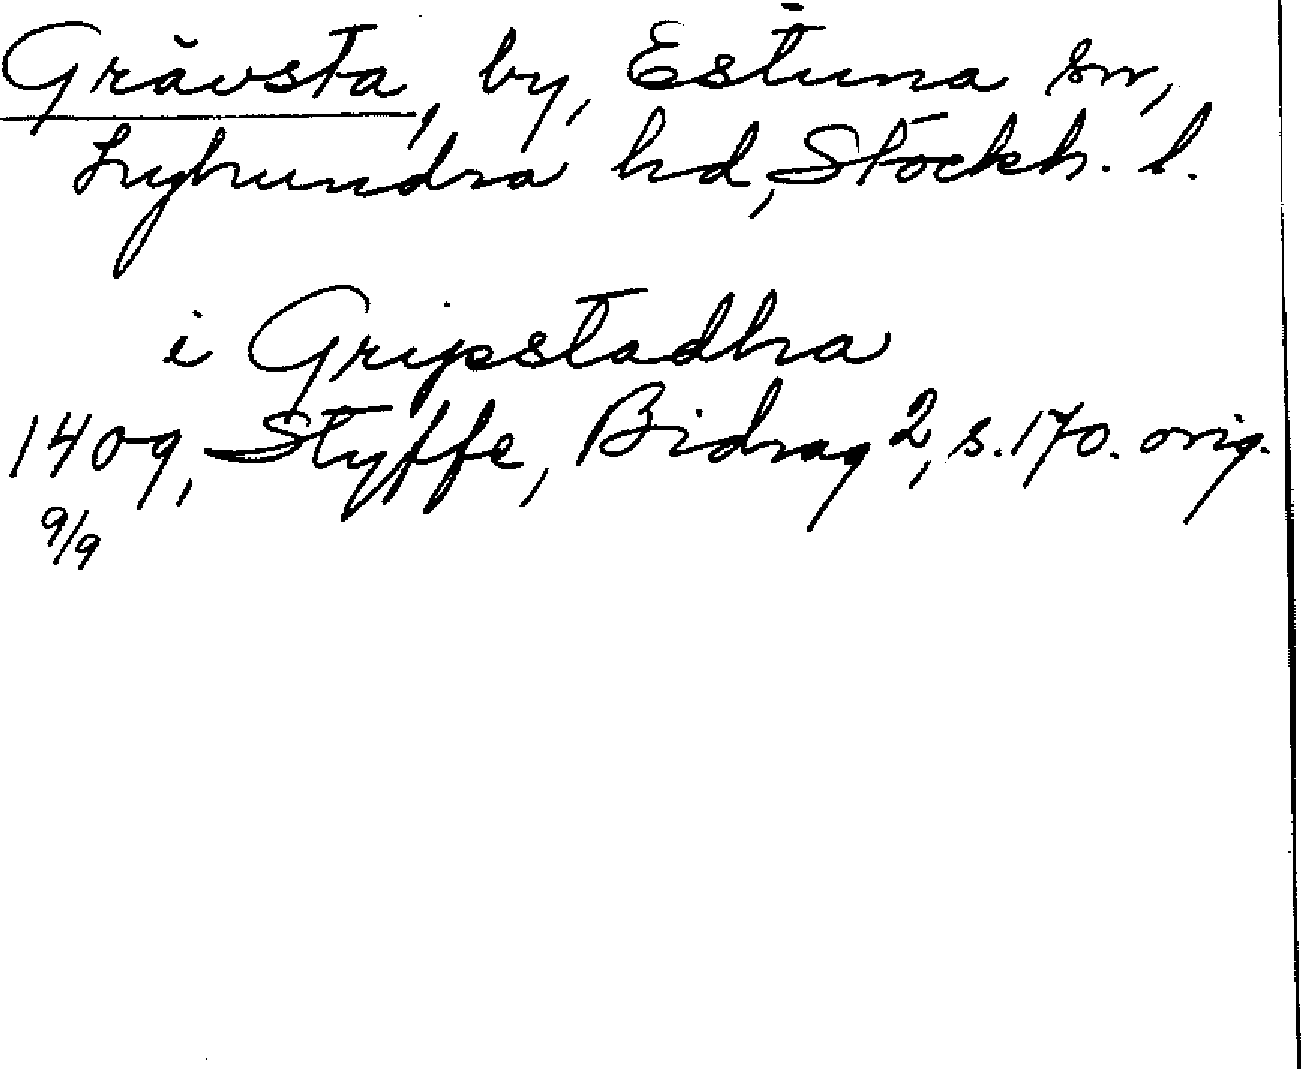 Grävsta, by, Estuna sn,
Lyhundra hd, Stockh. l.
i Gripstadha
1409, Styffe, Bidrag 2, s. 170. orig.
9/9